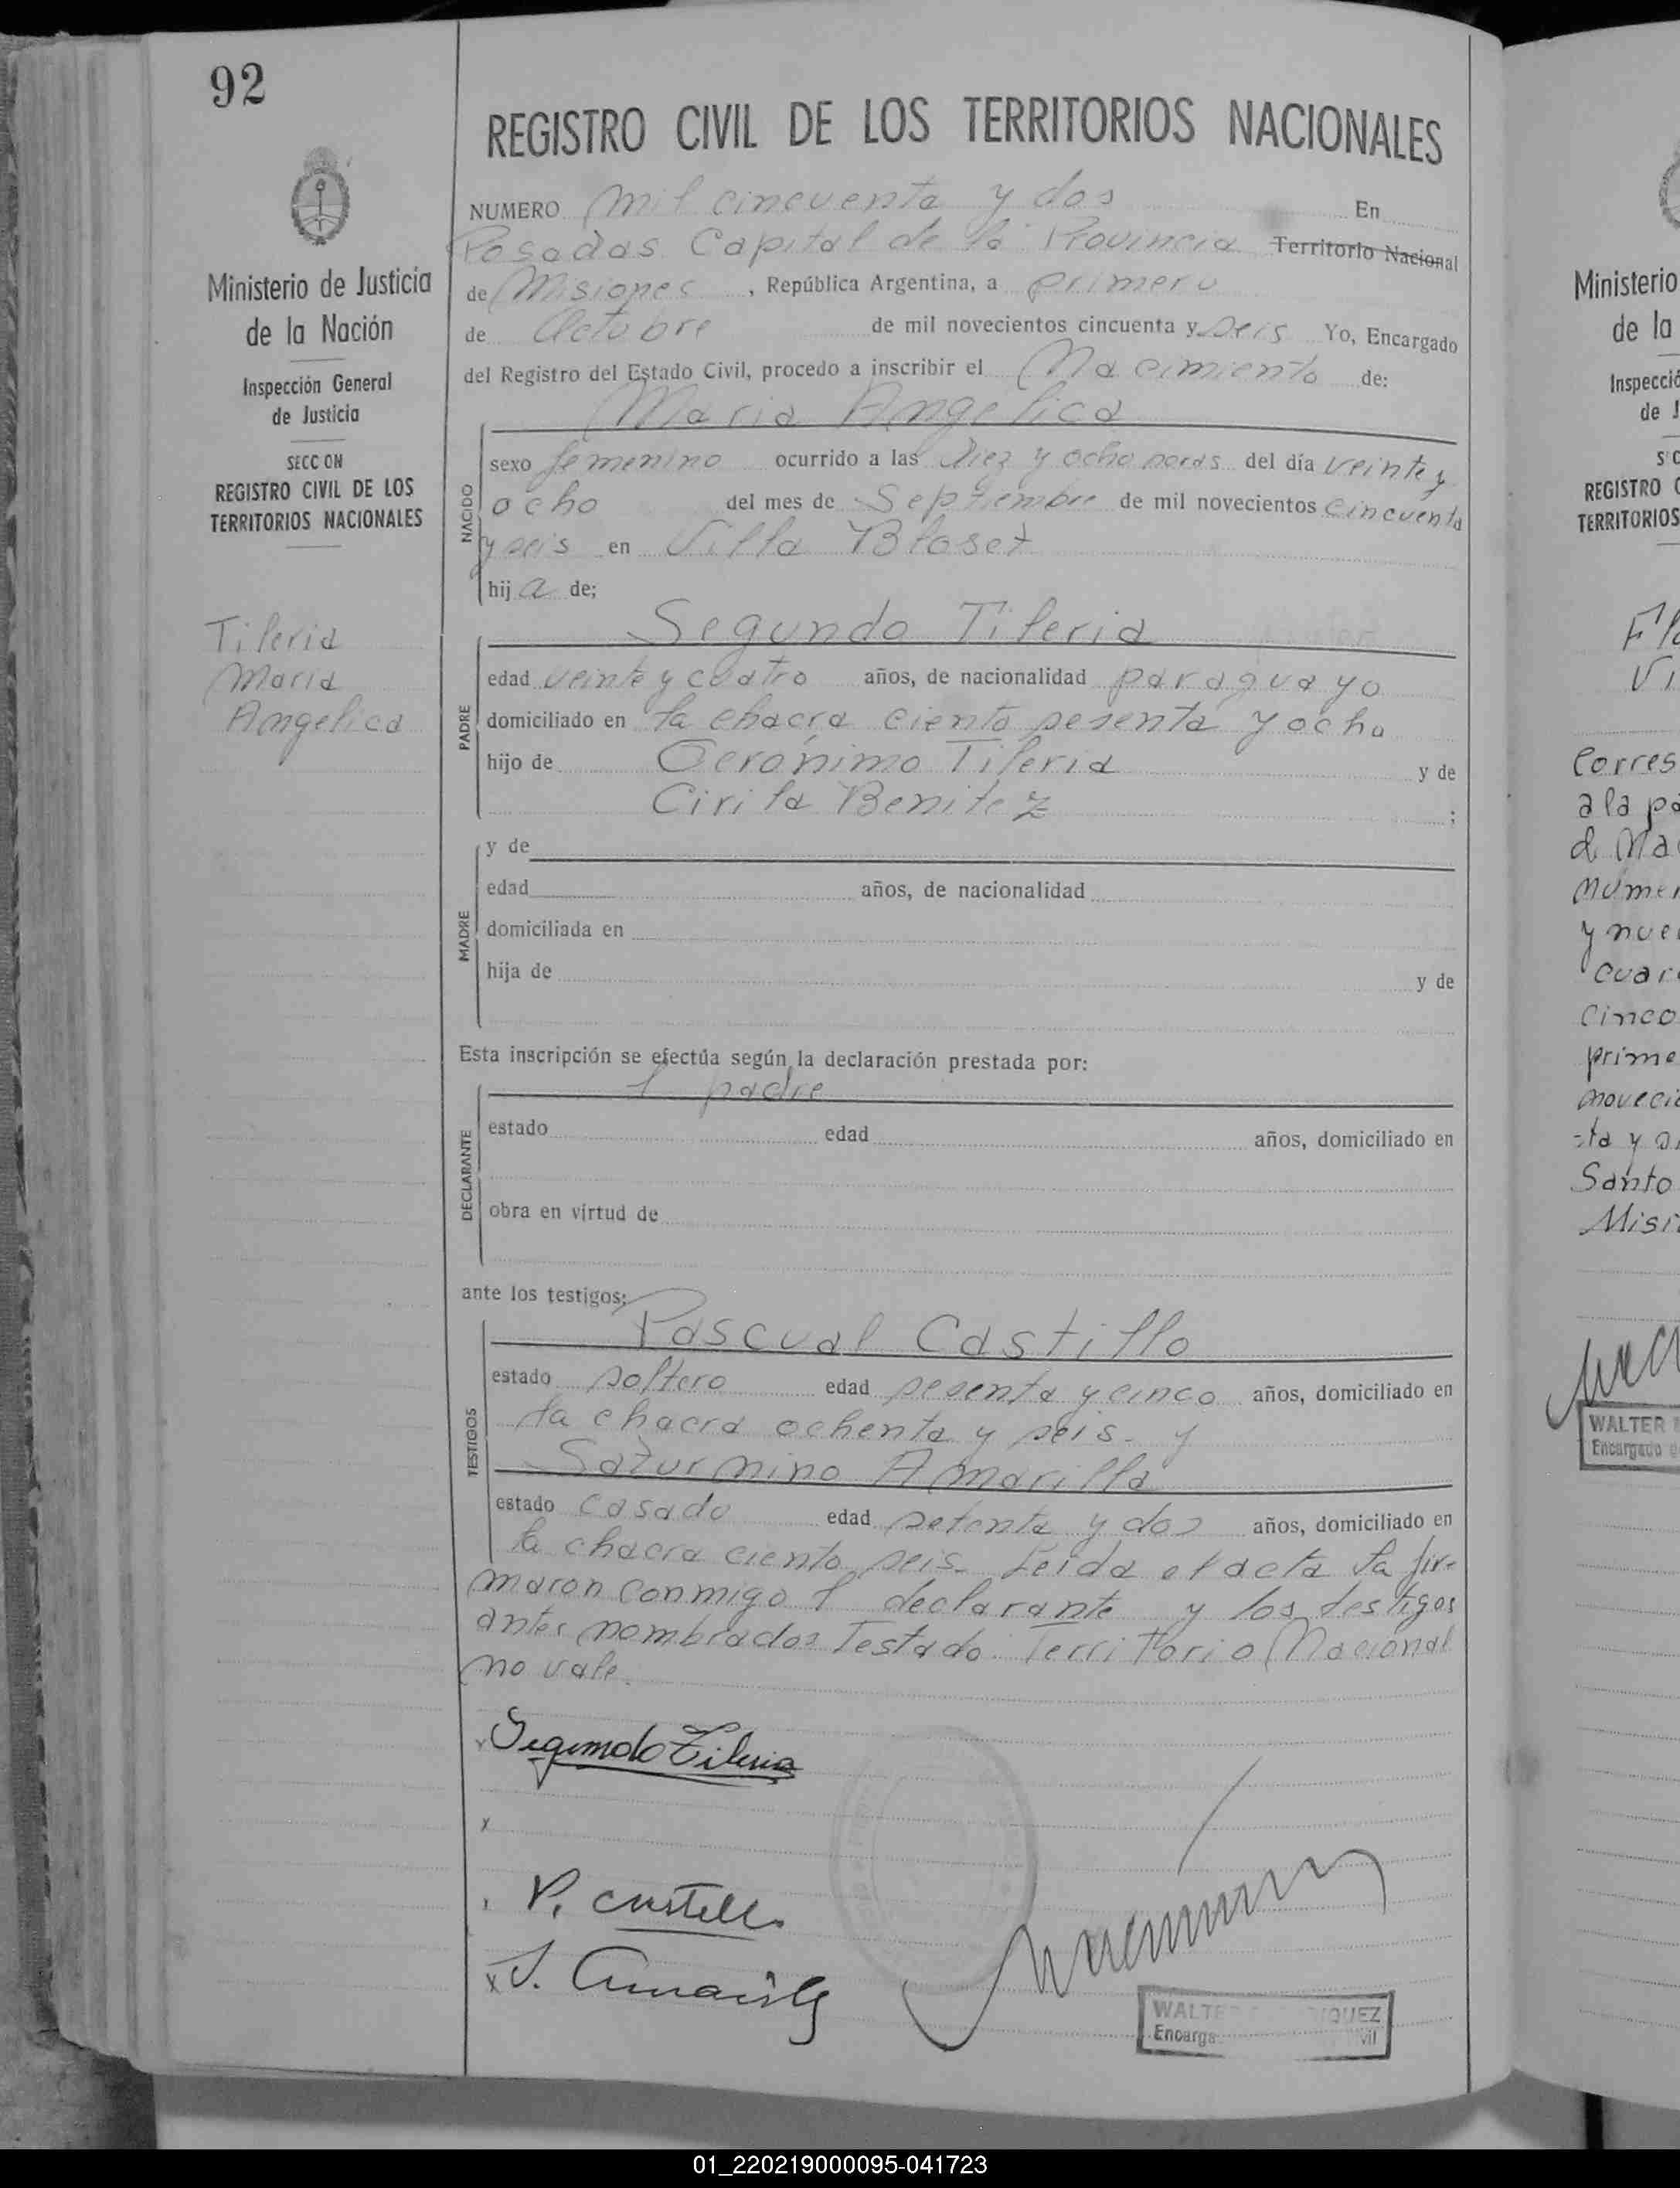 92
REGISTRO CIVIL DE LOS TERRITORIOS NACIONALES
Ministerio de Justicia
de la Nación
Inspección General
de Justicia
SECC ON
REGISTRO CIVIL DE LOS
TERRITORIOS NACIONALES
Tileria
Maria
Angelica
NUMERO mil cincuenta y dos En
Posadas Capital de la Provincia Territorio Nacional
de Misiones, República Argentina, a primero
de Octubre de mil novecientos cincuenta y seis Yo, Encargado
del Registro del Estado Civil, procedo a inscribir el Nacimiento de:
Maria Angelica
NACIDO
sexo femenino ocurrido a las diez y ocho horas del día veinte y
ocho del mes de Septiembre de mil novecientos cincuenta
y seis en Villa Bloset
hija de;
Segundo Tileria
PADRE
edad veinte y cuatro años, de nacionalidad paraguayo
domiciliado en la chacra ciento sesenta y ocho
hijo de Gerónimo Tileria y de
Cirila Benitez ;
MADRE
y de
edad años, de nacionalidad
domiciliada en
hija de y de
Esta inscripción se efectúa según la declaración prestada por:
l padre
DECLARANTE
estado edad años, domiciliado en
obra en virtud de
ante los testigos:
Pascual Castillo
TESTIGOS
estado soltero edad sesenta y cinco años, domiciliado en
la chacra ochenta y seis. y
Saturnino Amarilla
estado casado edad setenta y dos años, domiciliado en
la chacra ciento seis. Leida el acta la fir-
maron conmigo l declarante y los testigos
antes nombrados Testado: Territorio Nacional
no vale.
Segundo Tileria
x
P. Castillo
x S. Amarilla
WALTE IQUEZ
Encarga vil
Ministerio
de la
Inspecció
de J
REGISTRO C
TERRITORIOS
Fl
Vi
Corres
a la pá
d Na
núme
y nue
cuar
cinco
prime
noveci
-ta y
Santo
Misi
WALTER
Encargado
01_220219000095-041723